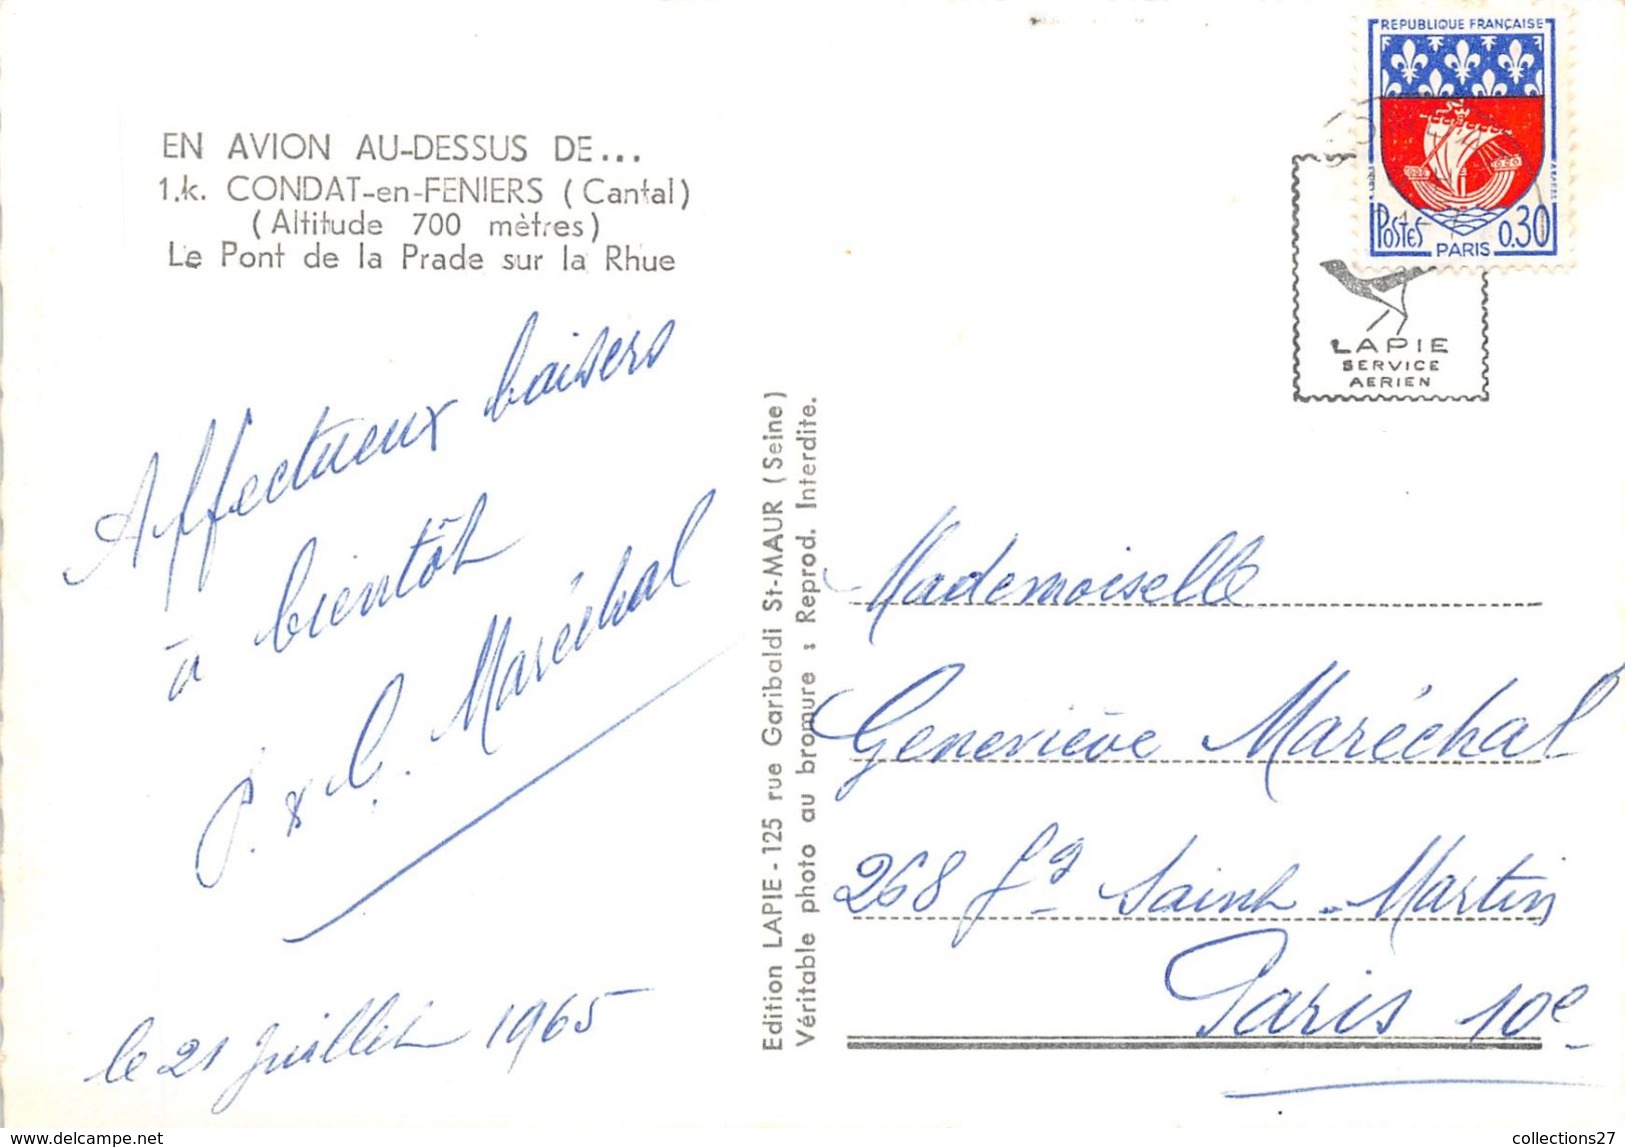 EN AVION AU-DESSUS DE...
1.k. CONDAT-en-FENIERS (Cantal)
(Altitude 700 mètres)
Le Pont de la Prade sur la Rhue
Affectueux baisers
à bientôt
J. & C. Maréchal
le 21 juillet 1965
Edition LAPIE - 125 rue Garibaldi St-MAUR (Seine)
Véritable photo au bromure : Reprod. Interdite.
REPUBLIQUE FRANÇAISE
Postes 0,30
PARIS
LAPIE
SERVICE
AERIEN
Mademoiselle
Geneviève Maréchal
268 fg Saint-Martin
Paris 10e
www.delcampe.net
collections27